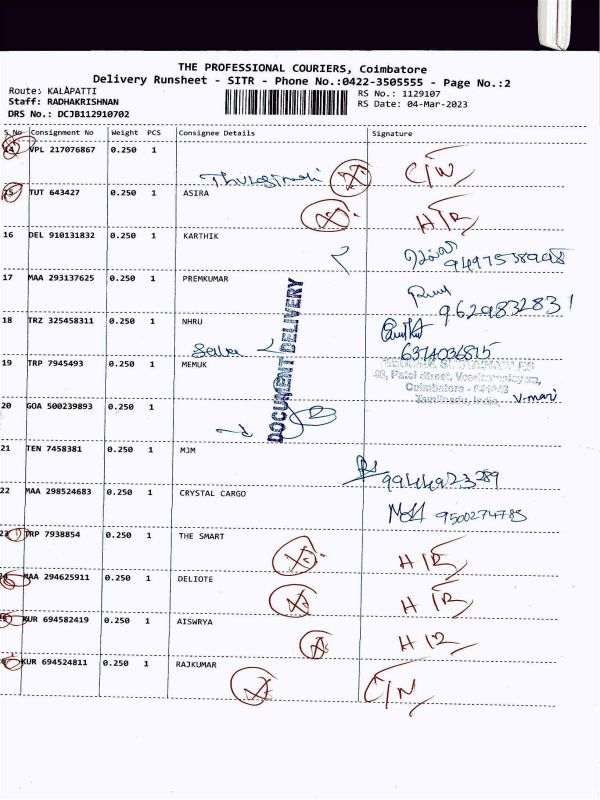 THE PROFESSIONAL COURIERS, Coimbatore
Delivery Runsheet - SITR - Phone No.:0422-3505555 - Page No.:2
Route: KALAPATTI
RS No.: 1129107
Staff: RADHAKRISHNAN
RS Date: 04-Mar-2023
DRS No.: DCJB112910702
S.No Consignment No Weight PCS Consignee Details Signature
14 VPL 217076867 0.250 1
C/N
15 TUT 643427 0.250 1 ASIRA
16 DEL 910131832 0.250 1 KARTHIK
17 MAA 293137625 0.250 1 PREMKUMAR
9629832831
18 TRZ 325458311 0.250 1 NHRU
6374036815
19 TRP 7945493 0.250 1 MEMUK
Coimbatore
Tamilnadu, India
V.mari
20 GOA 500239893 0.250 1
DOCUMENT DELIVERY
21 TEN 7458381 0.250 1 MJM
22 MAA 298524683 0.250 1 CRYSTAL CARGO
9500274783
23 TRP 7938854 0.250 1 THE SMART
24 MAA 294625911 0.250 1 DELIOTE
25 KUR 694582419 0.250 1 AISWRYA
KUR 694524811 0.250 1 RAJKUMAR
C/N